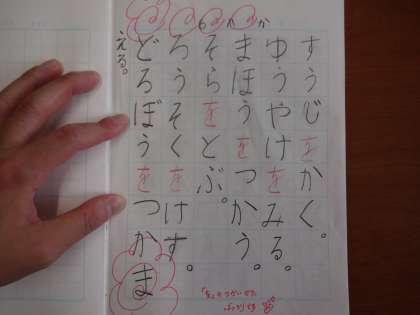 すうじをかく。
ゆうやけをみる。
まほうをつかう。
そらをとぶ。
ろうそくをけす。
どろぼうをつかま
える。
「を」のつかいかた
ばっちりです